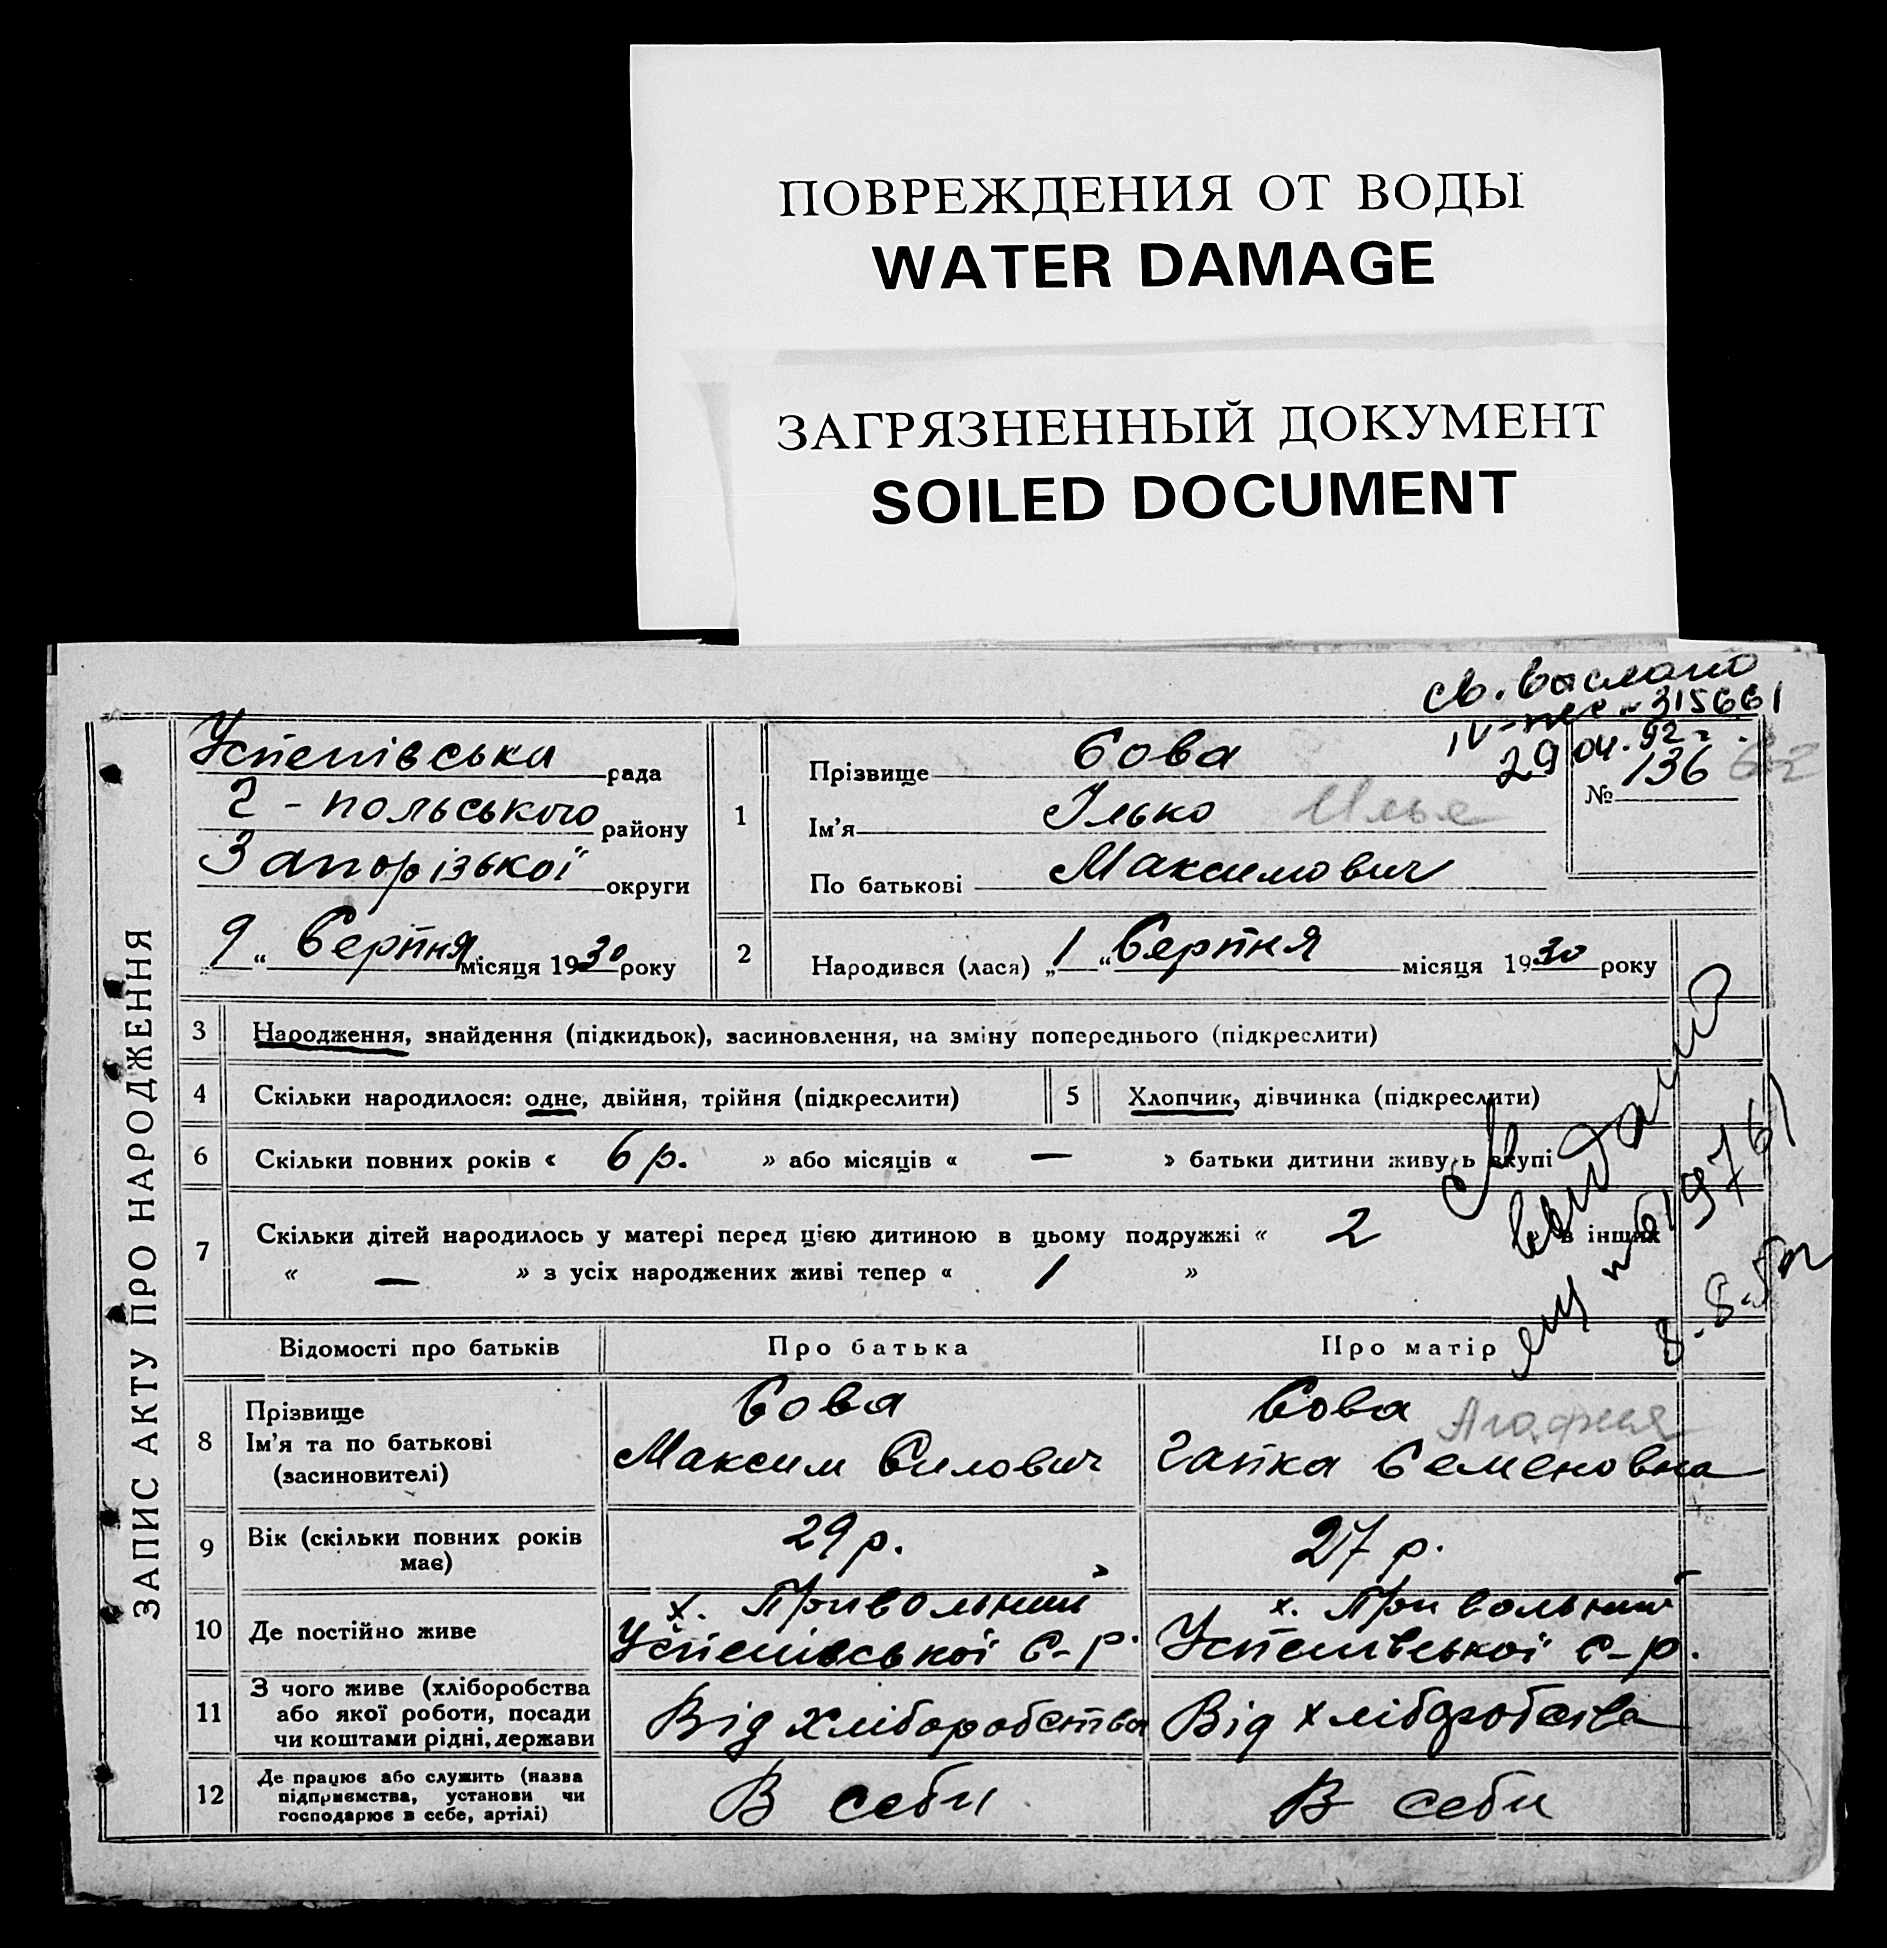 ПОВРЕЖДЕНИЯ ОТ ВОДЫ
WATER DAMAGE
ЗАГРЯЗНЕННЫЙ ДОКУМЕНТ
SOILED DOCUMENT
315661
29 04. 92 г.
ЗАПИС АКТУ ПРО НАРОДЖЕННЯ
Успенівська рада
Г-польського району
Запорізької округи
9 „ Серпня місяця 1930 року
1
Прізвище Сова
Ім'я Ілько Илья
По батькові Максимович
№ 136
2
Народився (лася) „ 1 “ Серпня місяця 1930 року
3 Народження, знайдення (підкидьок), засиновлення, на зміну попереднього (підкреслити)
4 Скільки народилося: одне, двійня, трійня (підкреслити)
5 Хлопчик, дівчинка (підкреслити)
6 Скільки повних років « 6 р. » або місяців « — » батьки дитини живуть вкупі
7 Скільки дітей народилось у матері перед цією дитиною в цьому подружжі « 2 » в інших
« — » з усіх народжених живі тепер « 1 »
Відомості про батьків Про батька Про матір
8 Прізвище
Ім'я та по батькові
(засиновителі)
Сова
Максим Силович
Сова Агафия
Гапка Семеновна
9 Вік (скільки повних років
має)
29 р.
27 р.
10 Де постійно живе
х. Привольний
Успенівської С-р.
х. Привольний
Успенівської С-р.
11 З чого живе (хліборобства
або якої роботи, посади
чи коштами рідні, держави
Від хліборобства
Від хліборобства
12 Де працює або служить (назва
підприємства, установи чи
господарює в себе, артілі)
В себи
В себи